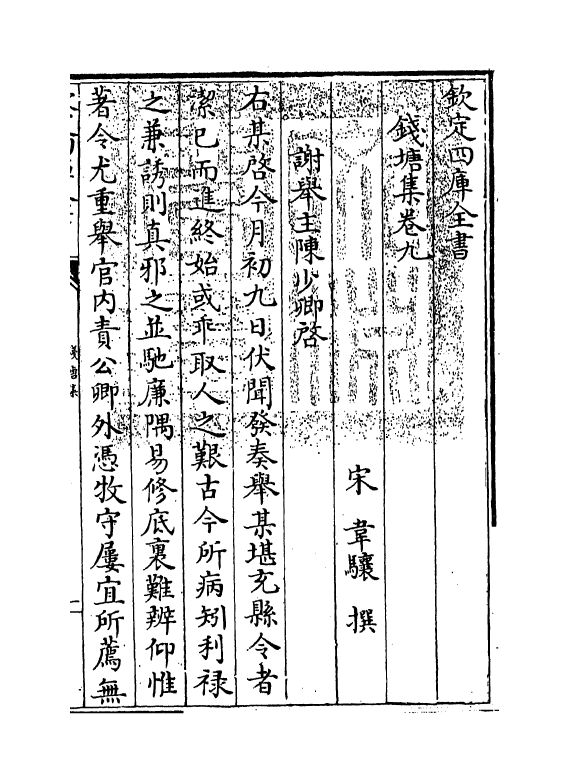 欽定四庫全書
錢塘集卷九
宋 韋驤 撰
謝舉主陳少卿啓
右某啓今月初九日伏聞發奏舉某堪充縣令者
潔已而進終始或乖取人之艱古今所病矧利禄
之兼誘則真邪之並馳廉隅易修底裏難辨仰惟
著令尤重舉官内責公卿外憑牧守屢宜所薦無